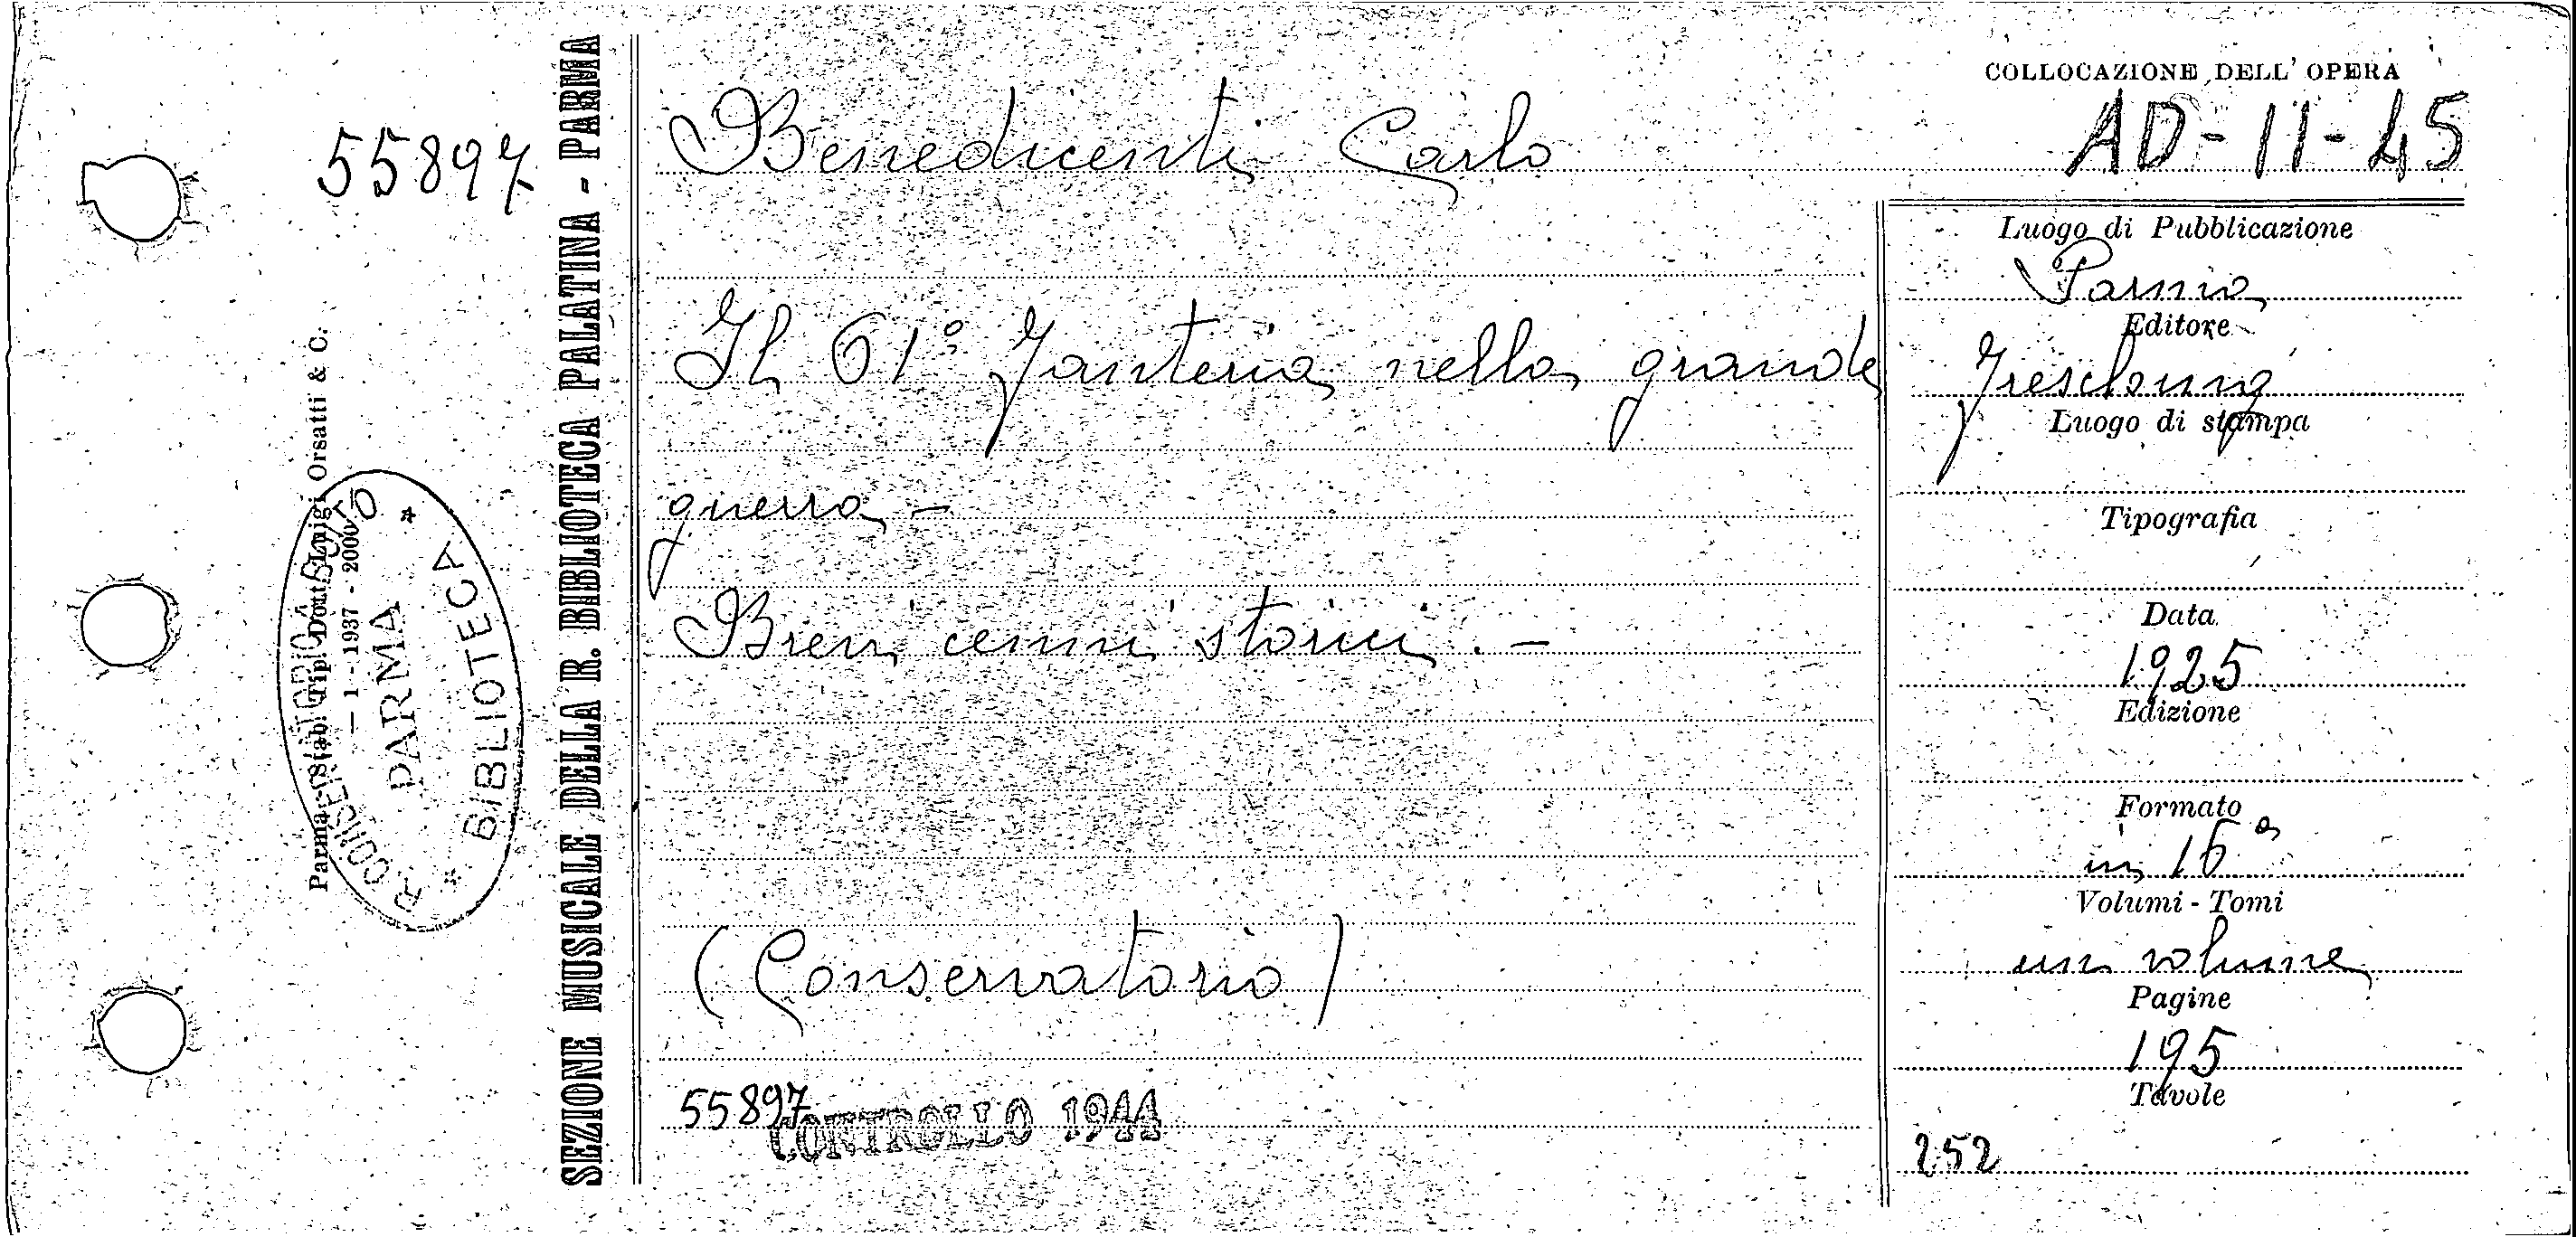 COLLOCAZIONE DELL' OPERA
AD-11-45
55897
Benedicenti Carlo
Il 61° Fanteria nella grande
guerra -
Brevi cenni storici. -
(Conservatorio)
55897
CONTROLLO 1944
Luogo di Pubblicazione
Parma
Editore
Freschung
Luogo di stampa
Tipografia
Data
1925
Edizione
Formato
in 16°
Volumi - Tomi
un volume
Pagine
195
Tavole
252
SEZIONE MUSICALE DELLA R. BIBLIOTECA PALATINA - PARMA
Parma - Stab. Tip. Dott. Luigi Orsatti & C.
- 1 - 1937 - 2000
PARMA
* BIBLIOTECA *